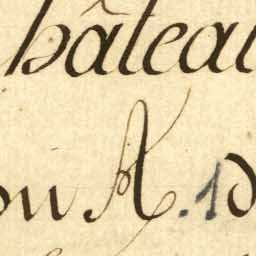 hâteau
ou A. 1